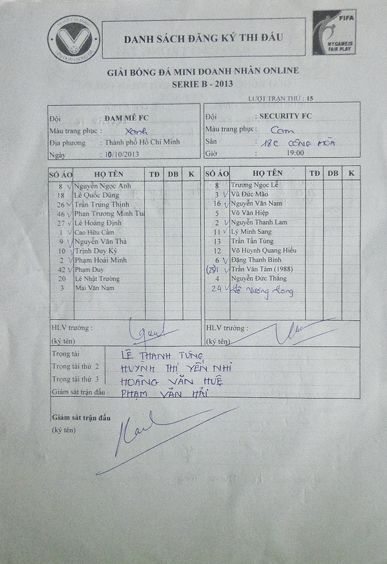 FIFA
MY GAME IS
FAIR PLAY
DANH SÁCH ĐĂNG KÝ THI ĐẤU
GIẢI BÓNG ĐÁ MINI DOANH NHÂN ONLINE
SERIE B - 2013
LƯỢT TRẬN THỨ : 15
Đội : ĐAM MÊ FC
Màu trang phục : Xanh
Địa phương : Thành phố Hồ Chí Minh
Ngày : 10/10/2013
Đội : SECURITY FC
Màu trang phục : Cam
Sân : 18C CỘNG HÒA
Giờ : 19:00
SỐ ÁO HỌ TÊN TĐ DB K
8 Nguyễn Ngọc Anh
18 Lê Quốc Dũng
26 Trần Trung Thịnh
46 Phan Trương Minh
27 Lê Hoàng Định
1 Cao Hữu Cầm
9 Nguyễn Văn Thà
10 Trịnh Duy Ký
2 Phạm Hoài Minh
42 Phạm Duy
20 Lê Nhật Trường
3 Mai Văn Nam
SỐ ÁO HỌ TÊN TĐ DB K
8 Trương Ngọc Lễ
3 Vũ Đức Mão
16 Nguyễn Văn Nam
5 Võ Văn Hiệp
2 Nguyễn Thanh Lam
11 Lý Minh Sang
13 Trần Tấn Tùng
12 Võ Huỳnh Quang Hiếu
6 Đặng Thanh Bình
Trần Văn Tâm (1988)
4 Nguyễn Đức Thắng
24
HLV trưởng :
(ký tên)
HLV trưởng :
(ký tên)
Trọng tài LÊ THANH TÙNG
Trọng tài thứ 2 HUỲNH THỊ YẾN NHI
Trọng tài thứ 3 HOÀNG VĂN HUỆ
Giám sát trận đấu PHẠM VĂN HẢI
Giám sát trận đấu
(ký tên)